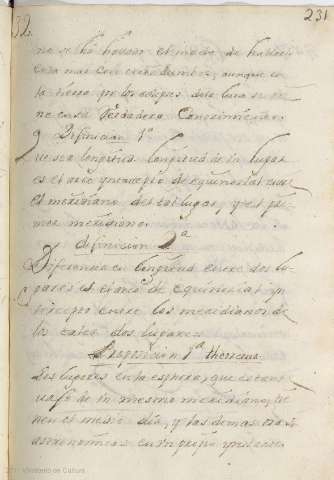 22. 231
no se ha hallado el modo de hallar
esta mas con certidumbre, aunque en
la tierra por los eclipses de la Luna se tie
ne casi verdadero Conocimiento.
Definicion 1ª
longitud de un lugar
es el arco yntercepto de equinoctial entre
el meridiano del tal lugar, y el pri
mer meridiano.
Definicion 2ª
Diferencia en longitud entre dos lu
gares es el arco de equinocial yn
tercepto entre los meridianos de
los tales dos lugares.
Proposicion 1ª theorema
Los lugares en la esphera, que estan
vajo de un mesmo meridiano, tie
nen el medio dia, y las demas oras
astronomicas en un propio ynstante.
Ministerio de Cultura